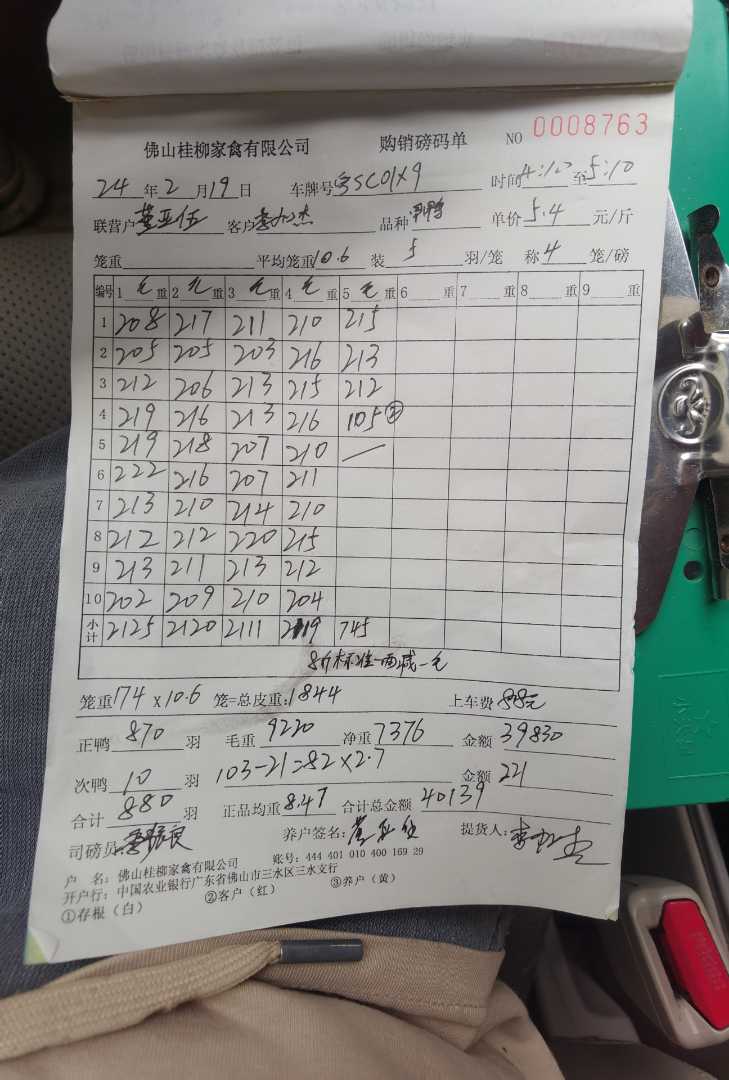 佛山桂柳家禽有限公司 购销磅码单 NO 0008763
24年2月19日 车牌号 时间4:10至5:10
联营户 客户 品种 单价5.4元/斤
笼重 平均笼重10.6 装5羽/笼 称4笼/磅
编号 1 毛重 2 毛重 3 毛重 4 毛重 5 毛重 6 重 7 重 8 重 9 重
1 208 217 211 210 215
2 205 205 203 216 213
3 212 206 213 215 212
4 219 216 213 216 105②
5 219 218 207 210 —
6 222 216 207 211
7 213 210 214 210
8 212 212 220 215
9 213 211 213 212
10 202 209 210 204
小计 2125 2120 2111 2119 745
8斤标准一两减一毛
笼重174×10.6 笼=总皮重:1844 上车费88元
正鸭870羽 毛重9220 净重7376 金额39830
次鸭10羽 103-21=82×2.7 金额221
合计880羽 正品均重8.47 合计总金额40139
司磅员: 养户签名: 提货人:
户 名：佛山桂柳家禽有限公司 账号：444 401 010 400 169 29
开户行：中国农业银行广东省佛山市三水区三水支行
①存根（白） ②客户（红） ③养户（黄）